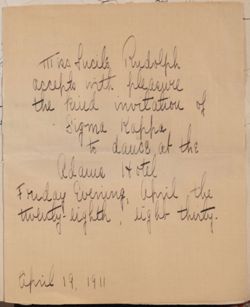 Miss Lucile Rudolph
accepts with pleasure
the kind invitation of
Sigma Kappa
to dance at the
Adams Hotel
Friday Evening, April the
twenty-eighth, eight thirty.
April 19, 1911